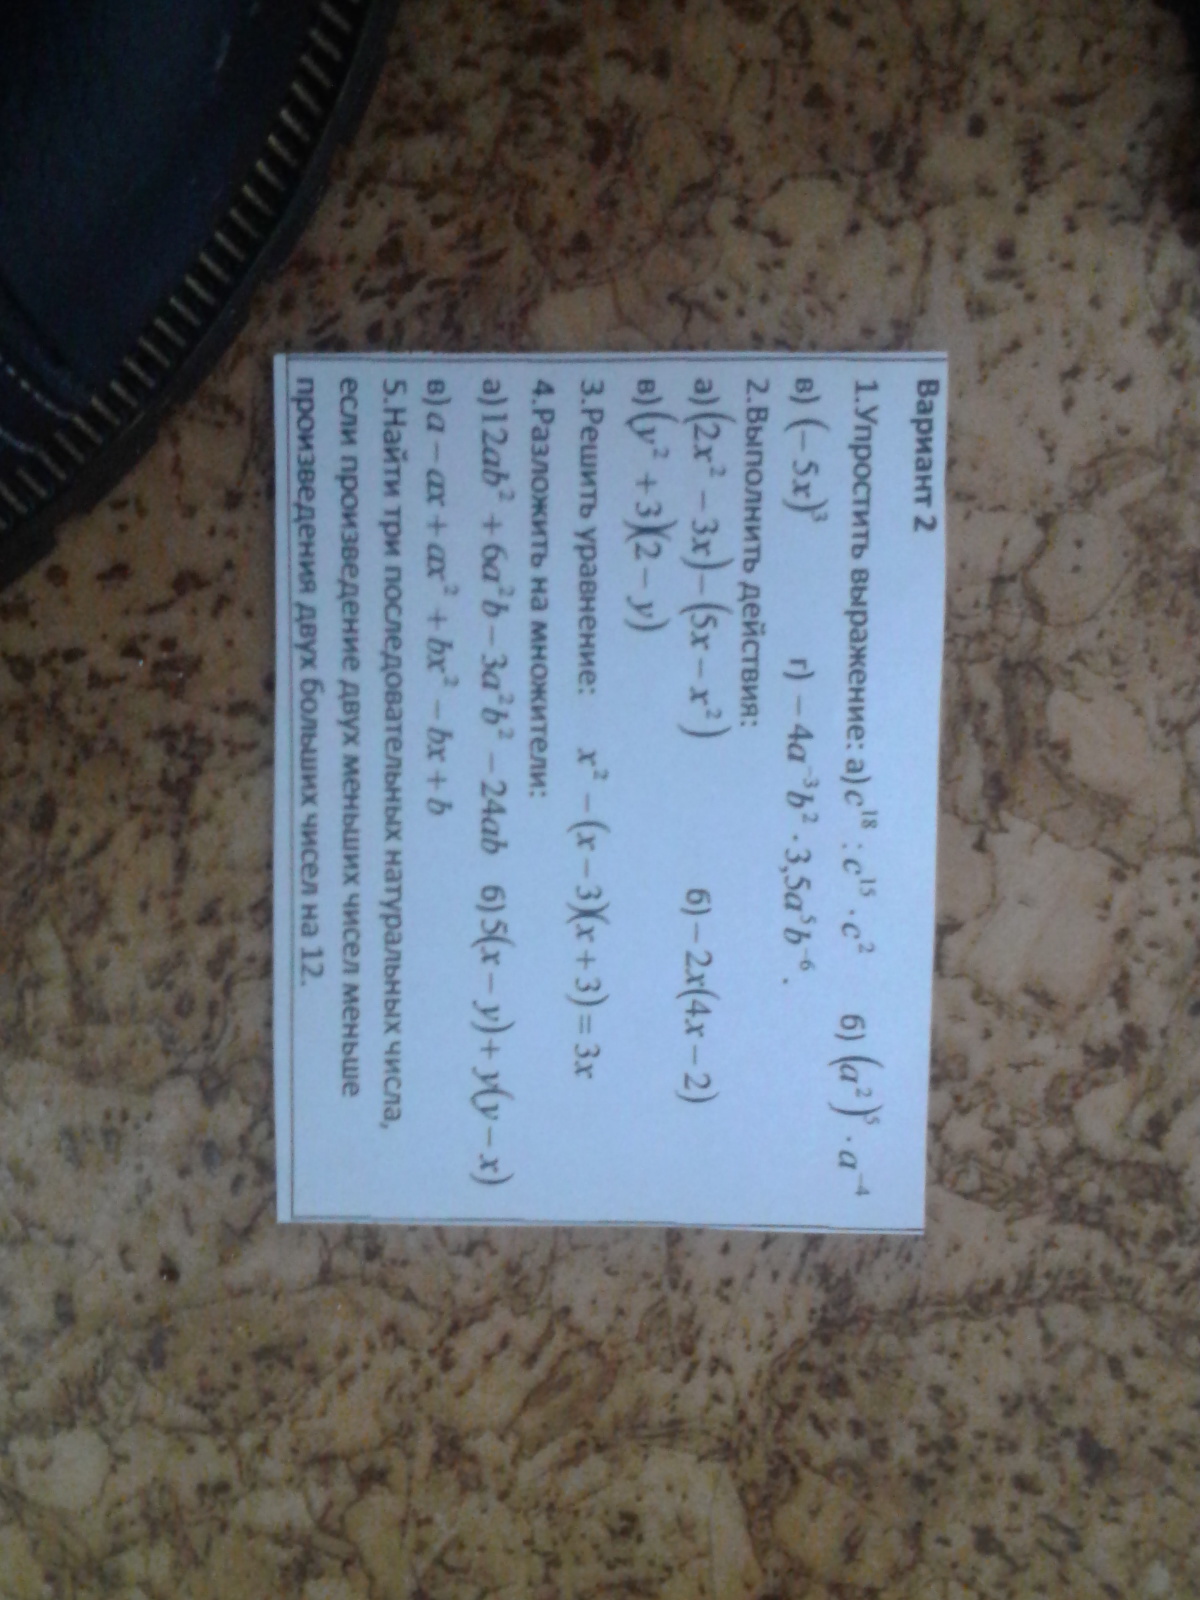 Вариант 2
1.Упростить выражение: а) c¹⁸ : c¹⁵ · c² б) (a²)⁵ · a⁻⁴
в) (−5x)³ г) −4a⁻³b² · 3,5a⁵b⁻⁶.
2.Выполнить действия:
а) (2x² − 3x) − (5x − x²) б) −2x(4x − 2)
в) (y² + 3)(2 − y)
3.Решить уравнение: x² − (x − 3)(x + 3) = 3x
4.Разложить на множители:
а) 12ab² + 6a²b − 3a²b² − 24ab б) 5(x − y) + y(y − x)
в) a − ax + ax² + bx² − bx + b
5.Найти три последовательных натуральных числа,
если произведение двух меньших чисел меньше
произведения двух больших чисел на 12.